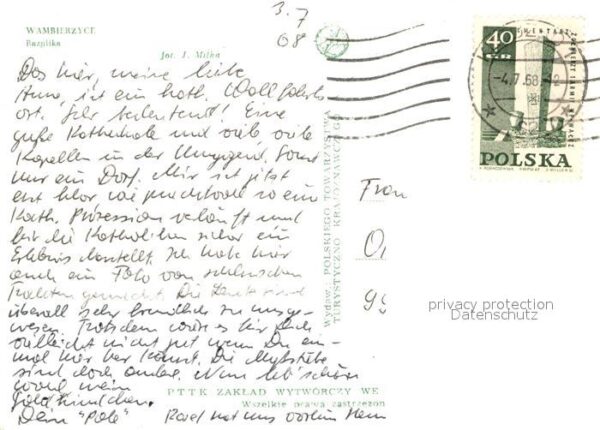 3.7
68
WAMBIERZYCE
Bazylika
Fot. J. Mitka
Das hier, meine liebe
Anna, ist ein kath. Wallfahrts
ort. Sehr bedeutend! Eine
große Kathedrale und viele, viele
Kapellen in der Umgegend. Sonst
nur ein Dorf. Mir ist jetzt
erst klar wie prachtvoll so ein
Kath. Prozession verläuft und
für die Katholiken sicher ein
Erlebnis darstellt. Ich habe hier
auch ein Foto von schlesischen
Trachten gemacht. Die Leute sind
überall sehr freundlich zu uns ge-
wesen. Trotzdem wäre es für Dich
vielleicht nicht gut wenn Du ein-
mal hier her kommst. Die
sind doch anders. Nun leb' schön
wohl mein
Goldkindchen.
Dein "Pole"
Wydaw. POLSKIEGO TOWARZYSTWA
TURYSTYCZNO KRAJOZNAWCZEGO
PTTK ZAKŁAD WYTWÓRCZY WE
Wszelkie prawa zastrzeżon
40
GR
-4.7.68
POLSKA
Frau
O
99
privacy protection
Datenschutz